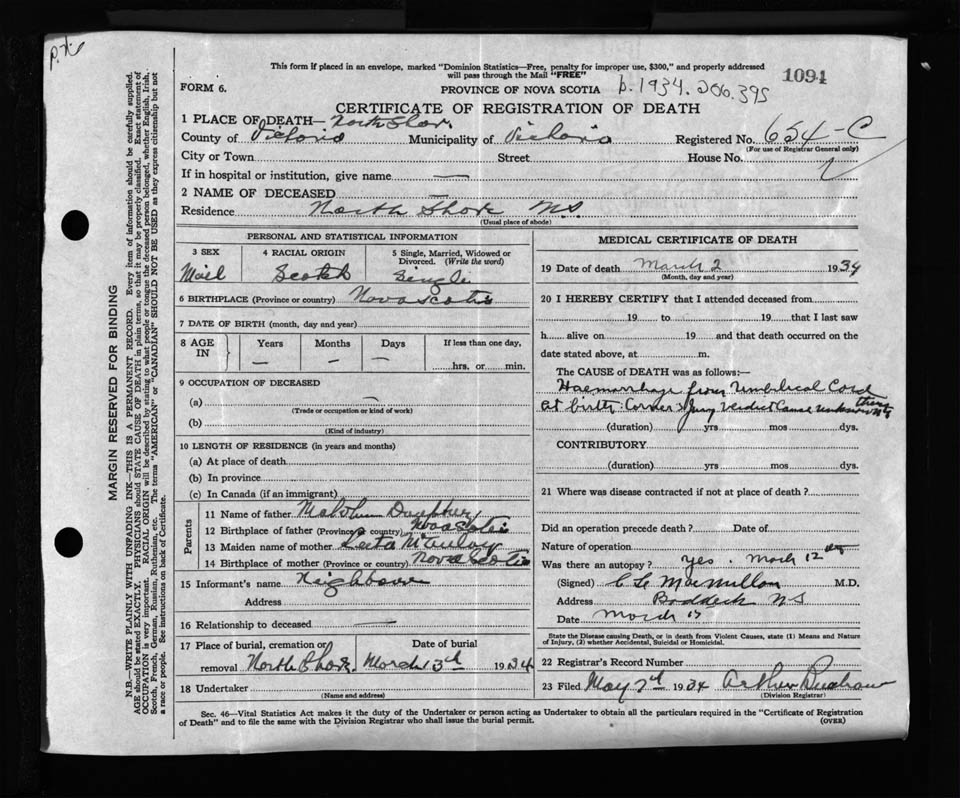 P.K.
This form if placed in an envelope, marked "Dominion Statistics—Free, penalty for improper use, $300," and properly addressed
will pass through the Mail "FREE"
1094
FORM 6.
PROVINCE OF NOVA SCOTIA
p. 1934. 206.395
CERTIFICATE OF REGISTRATION OF DEATH
1 PLACE OF DEATH— North Shore
County of Victoria Municipality of Victoria Registered No. 654-C
(For use of Registrar General only)
City or Town Street House No.
If in hospital or institution, give name —
2 NAME OF DECEASED —
Residence North Shore N.S.
(Usual place of abode)
PERSONAL AND STATISTICAL INFORMATION
3 SEX 4 RACIAL ORIGIN 5 Single, Married, Widowed or
Divorced. (Write the word)
Mail Scotch Single
6 BIRTHPLACE (Province or country) Nova Scotia
7 DATE OF BIRTH (month, day and year)
8 AGE IN Years Months Days If less than one day,
— — — hrs. or min.
9 OCCUPATION OF DECEASED
(a) —
(Trade or occupation or kind of work)
(b)
(Kind of industry)
10 LENGTH OF RESIDENCE (in years and months)
(a) At place of death
(b) In province
(c) In Canada (if an immigrant)
Parents
11 Name of father
12 Birthplace of father (Province or country) Nova Scotia
13 Maiden name of mother
14 Birthplace of mother (Province or country) Nova Scotia
15 Informant's name Neighbours
Address
16 Relationship to deceased —
17 Place of burial, cremation or Date of burial
removal North Shore. March 3rd 1934
18 Undertaker
(Name and address)
MEDICAL CERTIFICATE OF DEATH
19 Date of death March 2 1934
(Month, day and year)
20 I HEREBY CERTIFY that I attended deceased from
19 to 19 that I last saw
h alive on 19 and that death occurred on the
date stated above, at m.
The CAUSE of DEATH was as follows:—
Haemorrhage from Umbilical Cord
at birth. Corner's Jury verdict Cause unknown to them
(duration) yrs mos dys.
CONTRIBUTORY
(duration) yrs mos dys.
21 Where was disease contracted if not at place of death?
Did an operation precede death? Date of
Nature of operation
Was there an autopsy? Yes. March 12th
(Signed) C L MacMillan M.D.
Address Baddeck NS
Date March 15
State the Disease causing Death, or in death from Violent Causes, state (1) Means and Nature
of Injury, (2) whether Accidental, Suicidal or Homicidal.
22 Registrar's Record Number
23 Filed May 2d 1934 Arthur
(Division Registrar)
Sec. 46—Vital Statistics Act makes it the duty of the Undertaker or person acting as Undertaker to obtain all the particulars required in the "Certificate of Registration
of Death" and to file the same with the Division Registrar who shall issue the burial permit. (OVER)
MARGIN RESERVED FOR BINDING
N.B.—WRITE PLAINLY WITH UNFADING INK—THIS IS A PERMANENT RECORD. Every item of information should be carefully supplied.
AGE should be stated EXACTLY. PHYSICIANS should STATE CAUSE OF DEATH in plain terms, so that it may be properly classified. Exact statement of
OCCUPATION is very important. RACIAL ORIGIN will be described by stating to what people or tongue the deceased person belonged, whether English, Irish,
Scotch, French, German, Russian, Ruthenian, etc. The terms "AMERICAN" or "CANADIAN" SHOULD NOT BE USED as they express citizenship but not
a race or people. See instructions on back of Certificate.